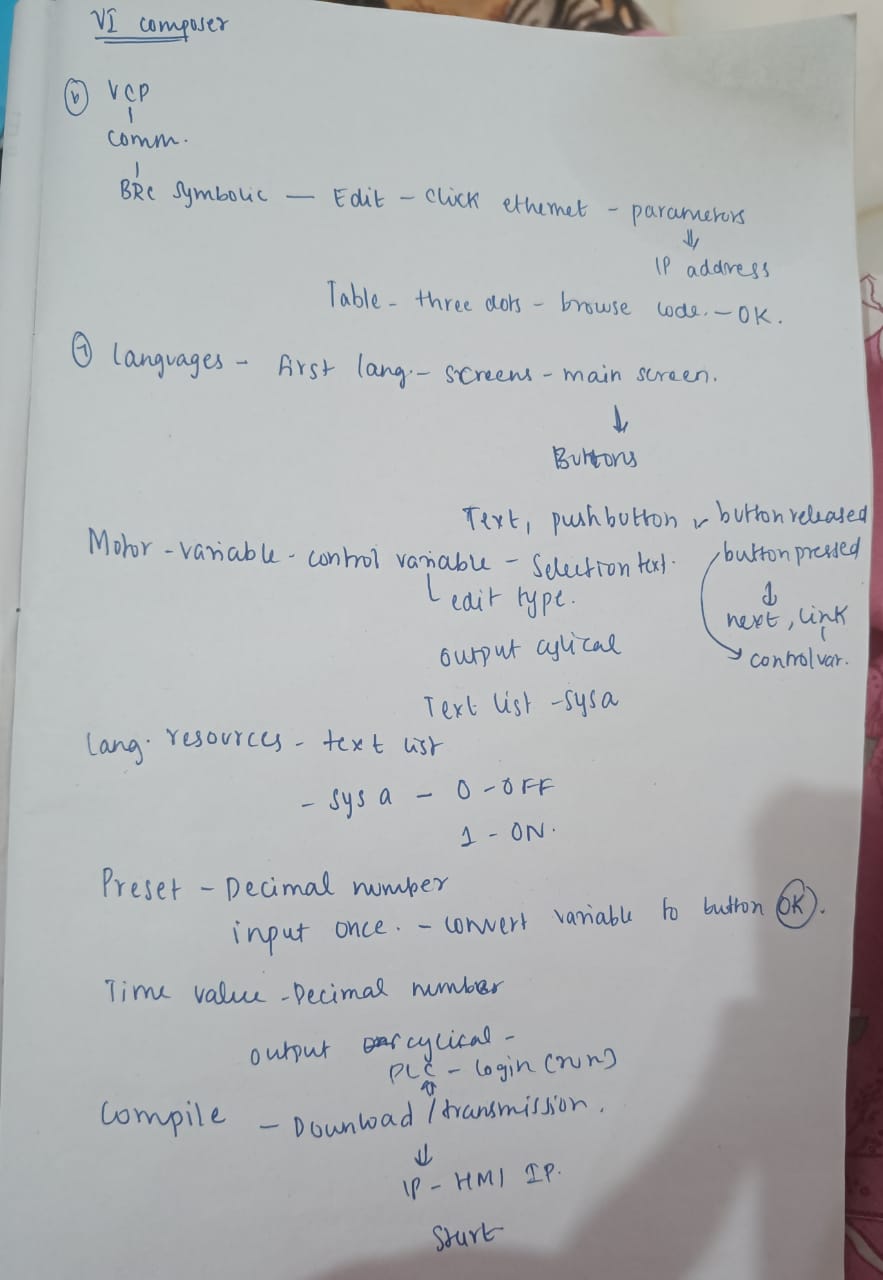 VI composer
(b) VCP
comm.
BRC Symbolic — Edit - click ethernet - parameters
⇓
IP address
Table - three dots - browse code. - OK.
(7) Languages - first lang. - screens - main screen.
↓
Buttons
Text, pushbutton
button released
Motor - variable - control variable - Selection text.
button pressed
edit type.
next, link
output cylical
control var.
Text list - sysa
Lang. resources - text list
- sys a - 0 - OFF
1 - ON.
Preset - Decimal number
input once. - convert variable to button OK.
Time value - Decimal number
output cylical -
PLC - login (run)
⇑
Compile - Download / transmission.
⇓
IP - HMI IP.
Start